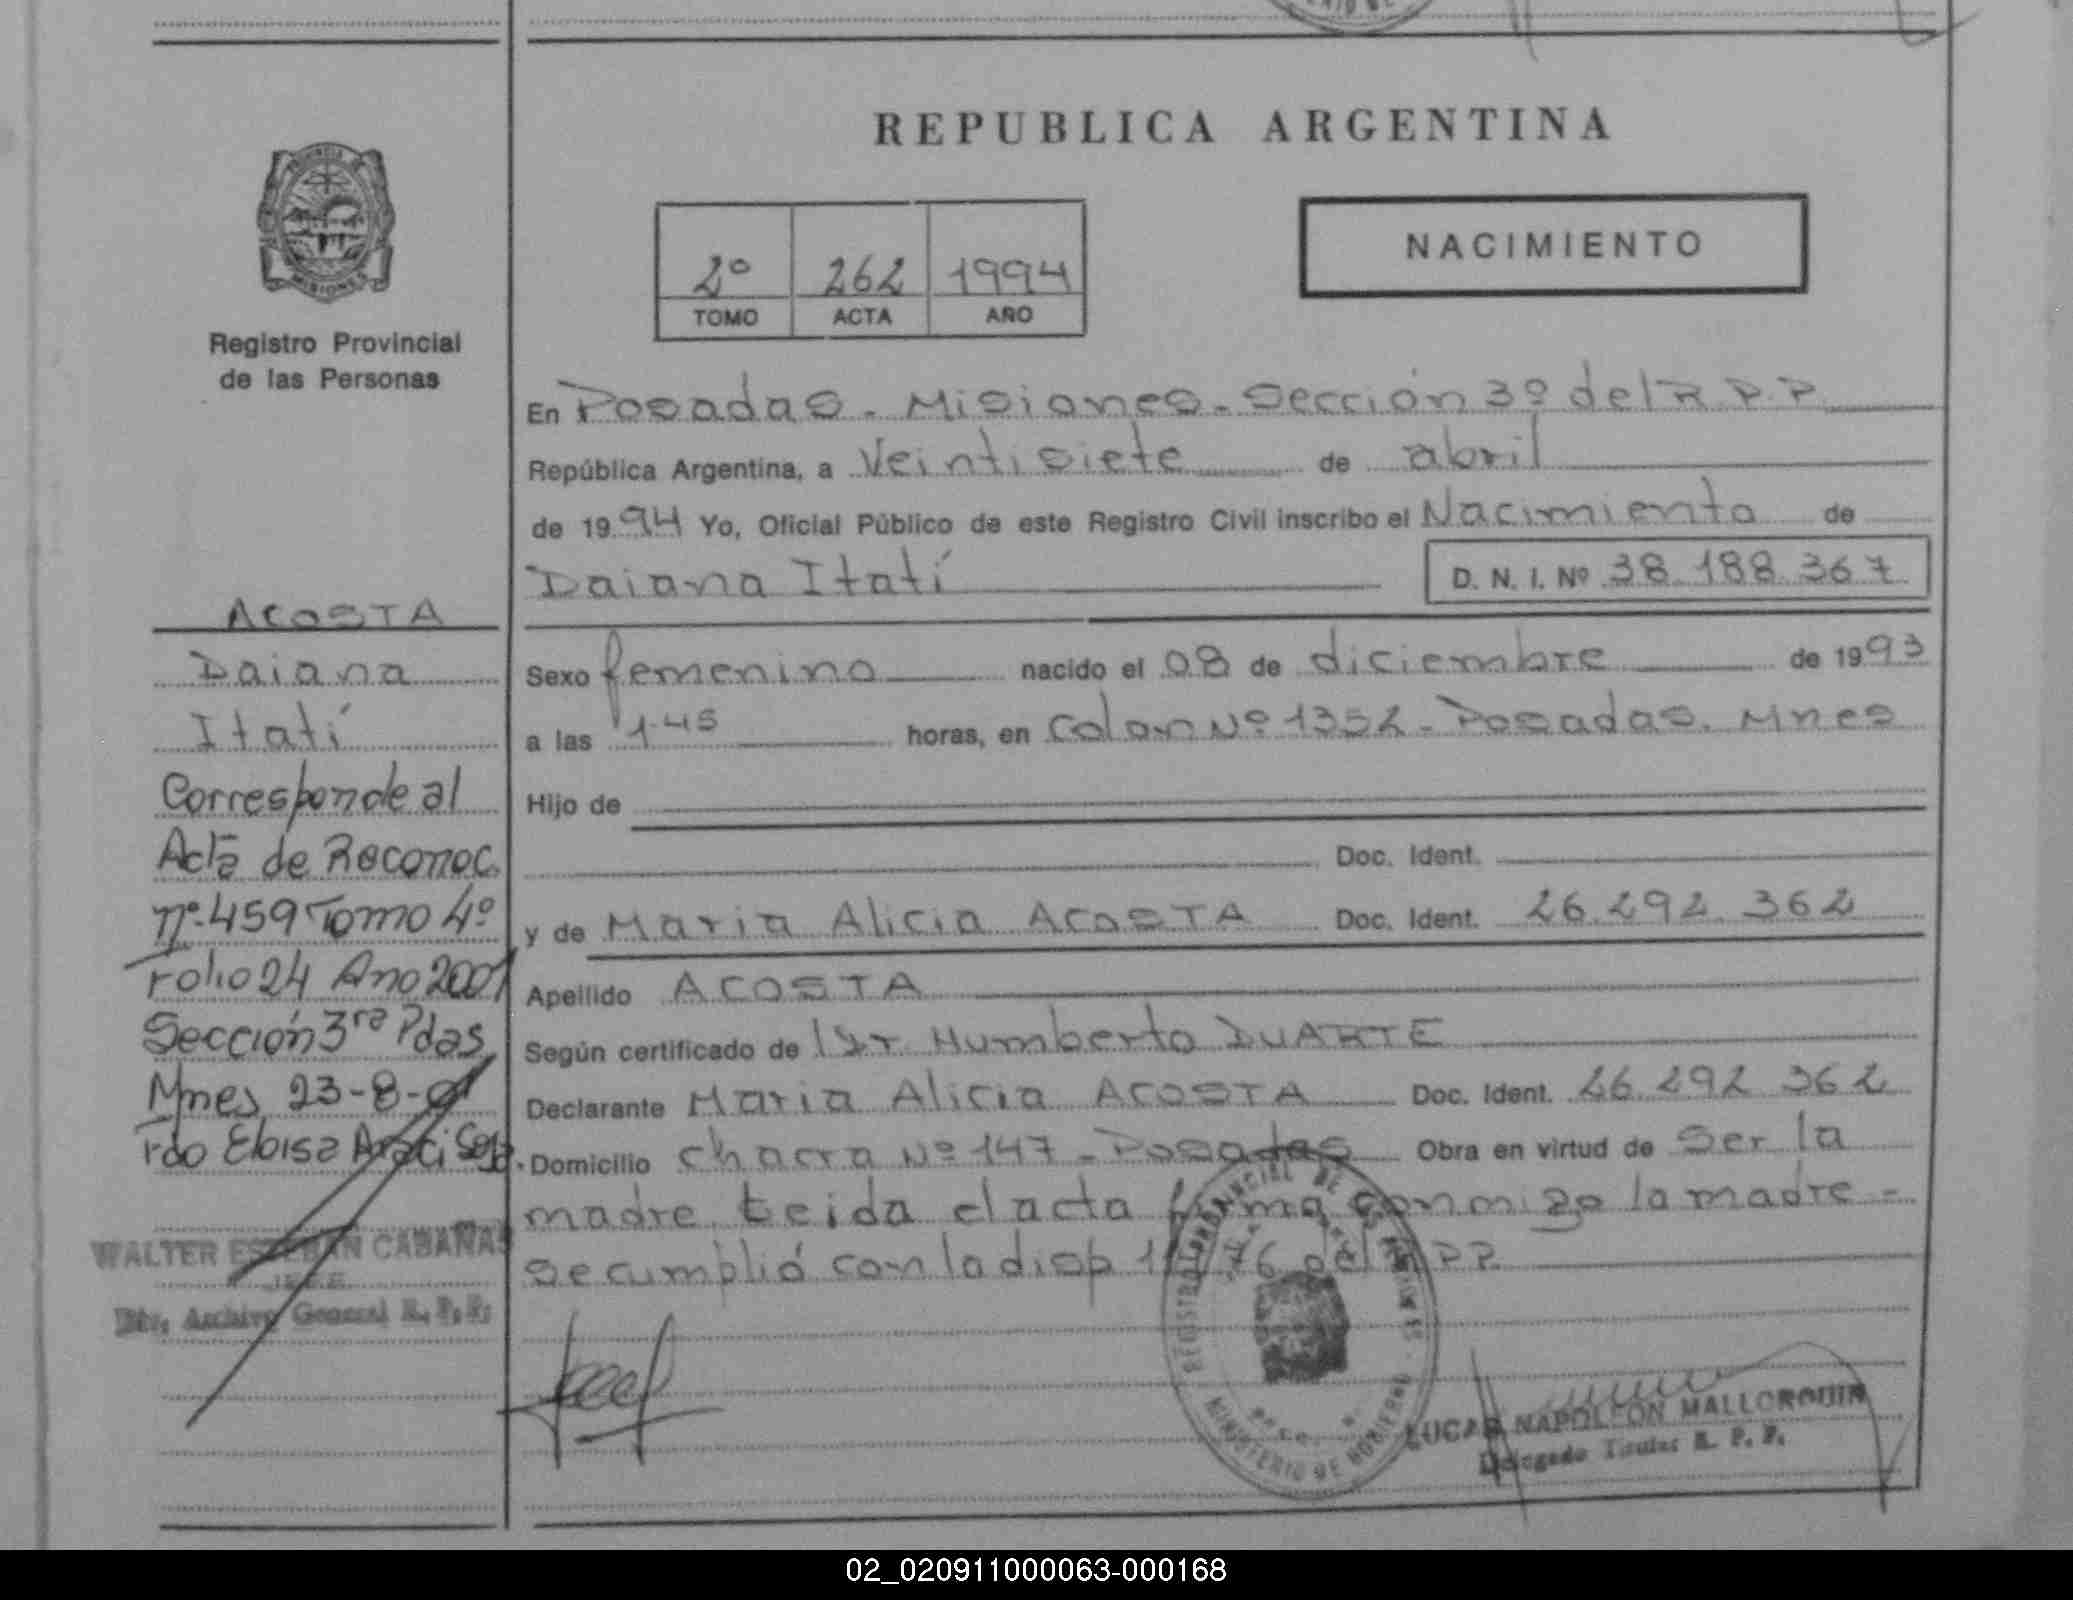 REPUBLICA ARGENTINA
NACIMIENTO
2º 262 1994
TOMO ACTA AÑO
PROVINCIA DE
MISIONES
Registro Provincial
de las Personas
ACOSTA
Daiana
Itatí
Corresponde al
Acta de Reconoc.
nº 459 Tomo 4º
Folio 24 Año 2001
Sección 3ra Pdas
Mnes 23-8-01
Fdo Eloisa Araci
WALTER ESTEBAN CABAÑAS
JEFE
Div. Archivo General R. P. P.
En Posadas - Misiones - Sección 3º del R.P.P.
República Argentina, a Veintisiete de abril
de 1994 Yo, Oficial Público de este Registro Civil inscribo el Nacimiento de
Daiana Itatí D. N. I. Nº 38.188.367
Sexo femenino nacido el 08 de diciembre de 1993
a las 1.45 horas, en Colon Nº 1352 - Posadas. Mnes
Hijo de
Doc. Ident.
y de Maria Alicia ACOSTA Doc. Ident. 26.292.362
Apellido ACOSTA
Según certificado de Dr Humberto DUARTE
Declarante Maria Alicia ACOSTA Doc. Ident. 26.292.362
Domicilio chacra Nº 147 - Posadas Obra en virtud de Ser la
madre leida el acta firma conmigo la madre -
se cumplió con la disp del P.P.
REGISTRO PROVINCIAL DE LAS PERSONAS
MINISTERIO DE GOBIERNO
LUCAS NAPOLEON MALLORQUIN
Delegado Titular R. P. P.
02_020911000063-000168